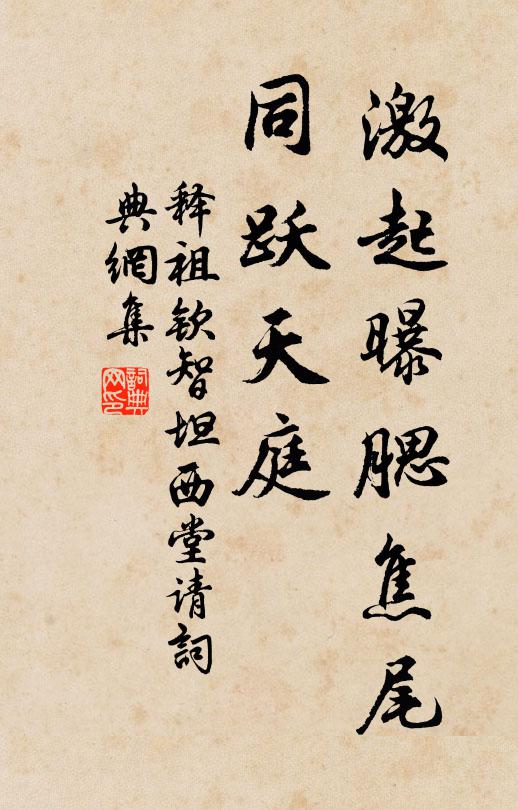 激起曝腮焦尾
同跃天庭
释祖钦智坦西堂请詞
典網集
詞典网印